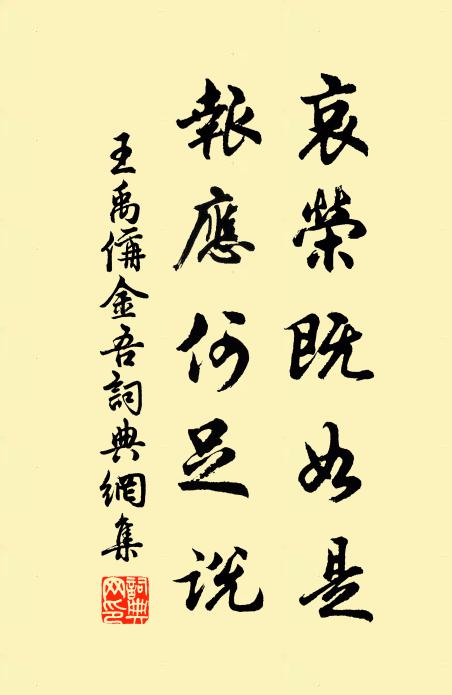 哀榮既如是
報應何足說
王禹偁金吾詞典網集
詞典網印